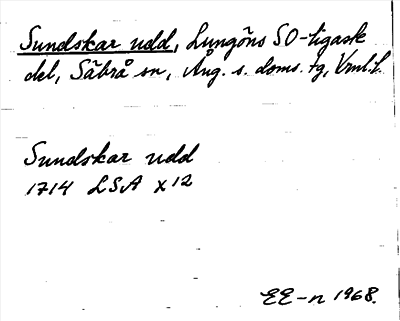 Sundskar udd, Lungöns SO-ligask
del, Säbrå sn, Ång. s. doms. tg, Vnl. l.
Sundskar udd
1714 LSA X 12
EE-n 1968.